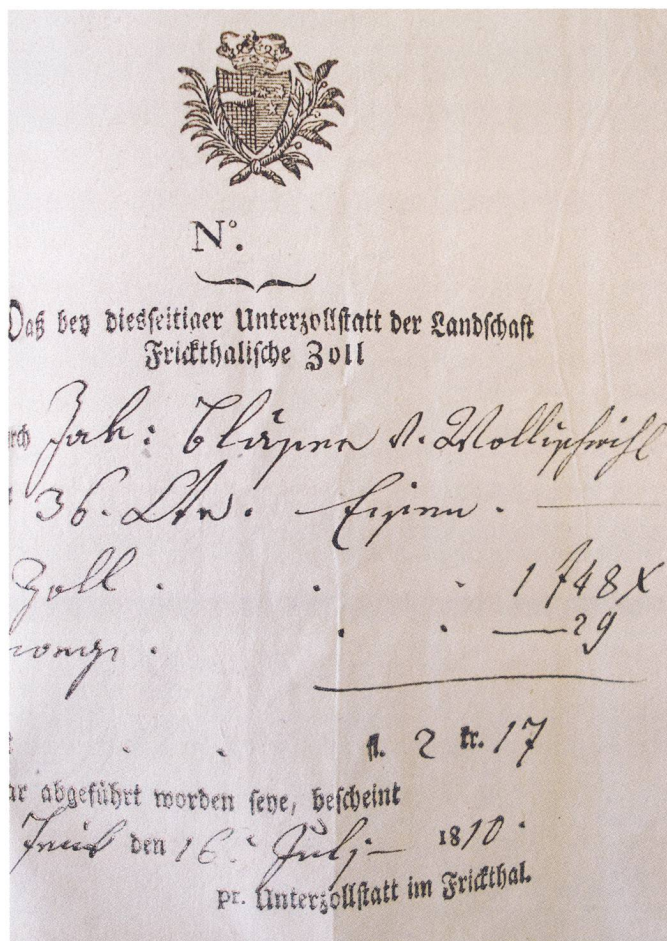 N°.
Daß bey diesseitiger Unterzollstatt der Landschaft
Frickthalische Zoll
rch Jak: Bläsner v. Wollischwihl
36. Ctn. Eysen.
Zoll . . . 1 f 48 X
. . — 29
. . fl. 2 kr. 17
ar abgeführt worden seye, bescheint
Frick den 16. Julj 1810.
pr. Unterzollstatt im Frickthal.